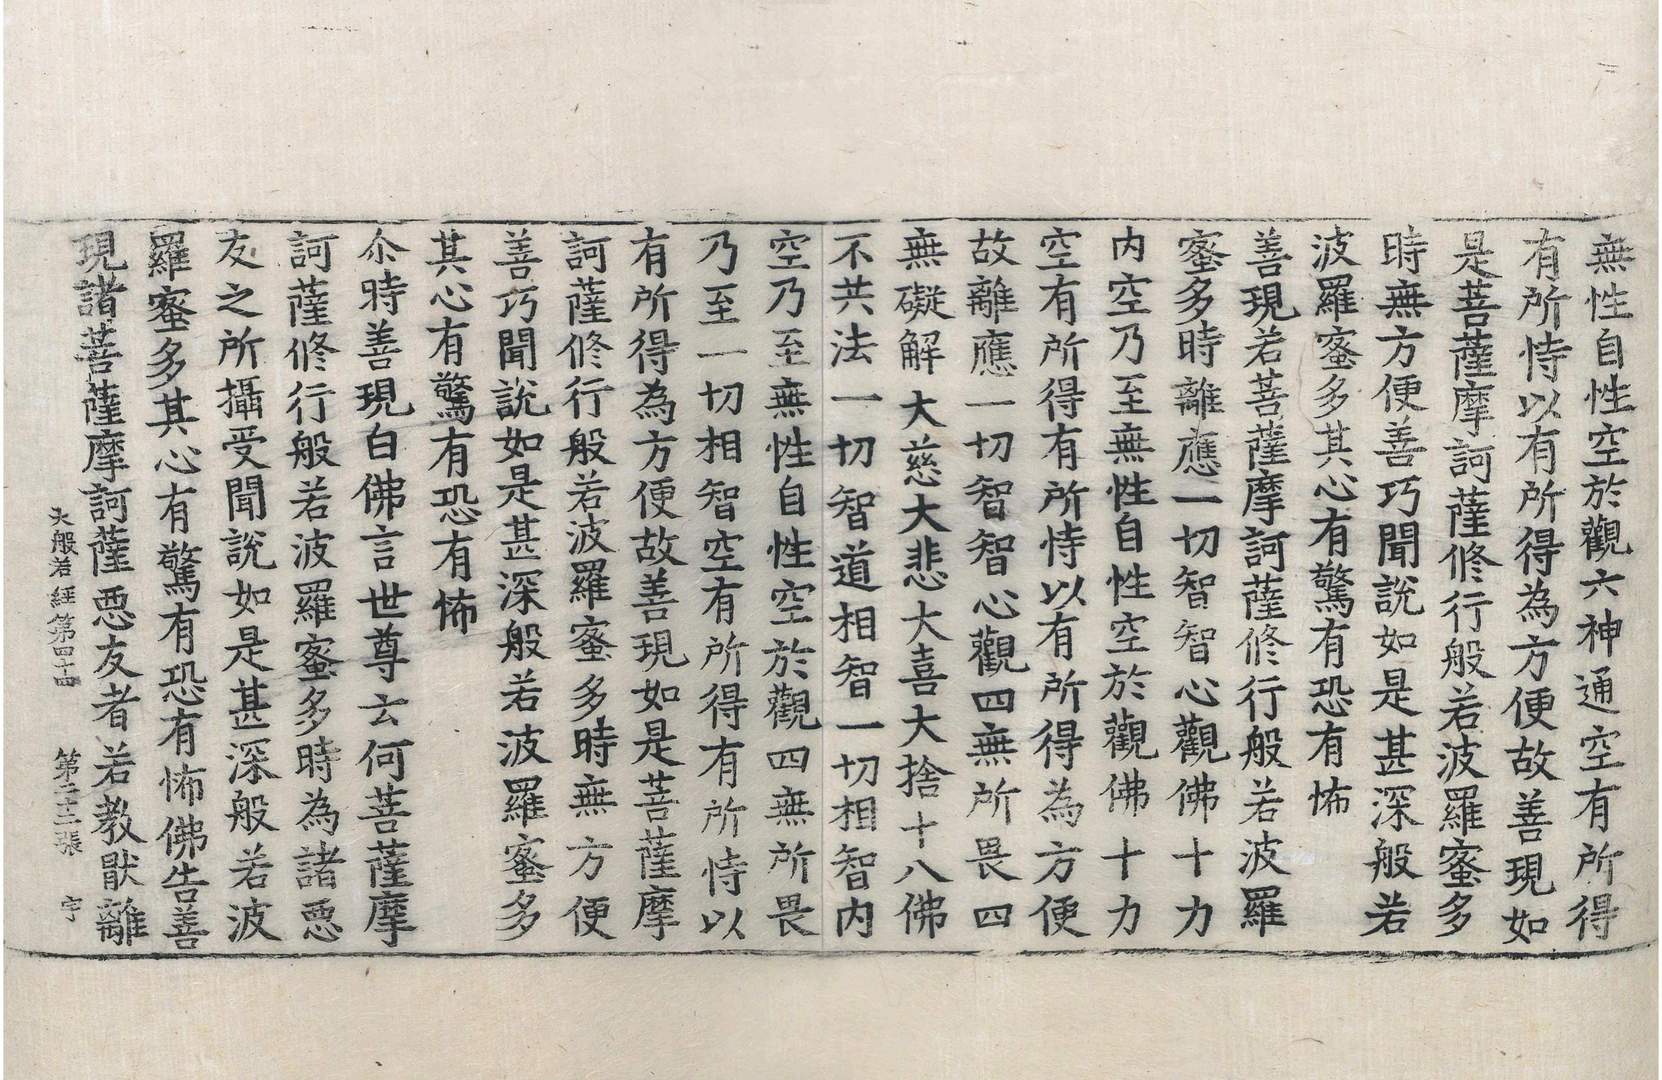 無性自性空於觀六神通空有所得
有所恃以有所得為方便故善現如
是菩薩摩訶薩修行般若波羅蜜多
時無方便善巧聞說如是甚深般若
波羅蜜多其心有驚有恐有怖
善現若菩薩摩訶薩修行般若波羅
蜜多時離應一切智智心觀佛十力
内空乃至無性自性空於觀佛十力
空有所得有所恃以有所得為方便
故離應一切智智心觀四無所畏四
無礙解大慈大悲大喜大捨十八佛
不共法一切智道相智一切相智内
空乃至無性自性空於觀四無所畏
乃至一切相智空有所得有所恃以
有所得為方便故善現如是菩薩摩
訶薩修行般若波羅蜜多時無方便
善巧聞說如是甚深般若波羅蜜多
其心有驚有恐有怖
尒時善現白佛言世尊云何菩薩摩
訶薩修行般若波羅蜜多時為諸惡
友之所攝受聞說如是甚深般若波
羅蜜多其心有驚有恐有怖佛告善
現諸菩薩摩訶薩惡友者若教猒離
大般若經第四十四 第二十二張 宇